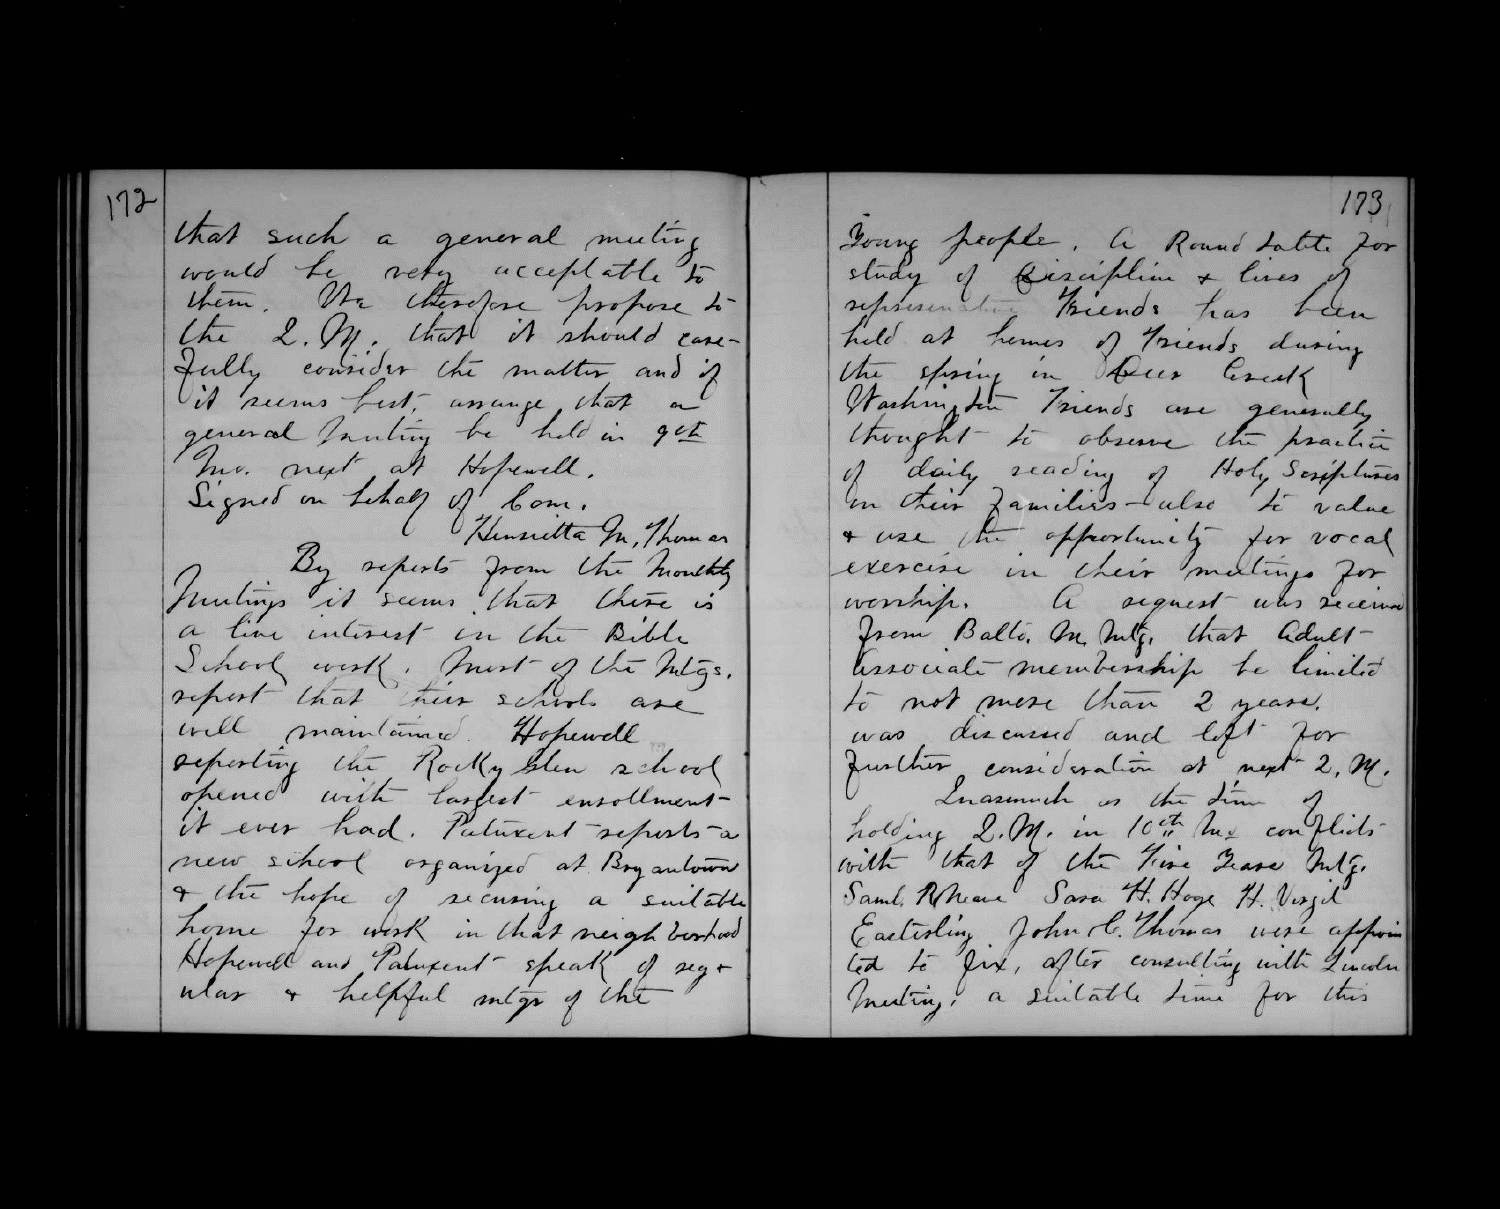 172
that such a general meeting
would be very acceptable to
them. We therefore propose to
the Q. M. that it should care-
fully consider the matter and if
it seems best, arrange that a
general meeting be held in 9th
Mo. next at Hopewell.
Signed on behalf of Com.
Henrietta M. Thomas
By reports from the Monthly
Meetings it seems that there is
a live interest in the Bible
School work. Most of the Mtgs.
report that their schools are
well maintained. Hopewell
reporting the Rocky Glen school
opened with largest enrollment
it ever had. Patuxent reports a
new school organized at Bryantown
& the hope of securing a suitable
home for work in that neighborhood
Hopewell and Patuxent speak of reg-
ular & helpful mtgs of the
173
Young people. A Round table for
study of Discipline & lives of
representative Friends has been
held at homes of Friends during
the spring in Deer Creek
Washington Friends are generally
thought to observe the practice
of daily reading of Holy Scriptures
in their families - also to value
& use the opportunity for vocal
exercise in their meetings for
worship. A request was received
from Balto. M. Mtg. that Adult
Associate membership be limited
to not more than 2 years.
was discussed and left for
further consideration at next Q. M.
Inasmuch as the time of
holding Q. M. in 10th Mo conflicts
with that of the Five Years Mtg.
Saml. R. Neave Sara H. Hoge H. Virgil
Easterling John C. Thomas were appoin
ted to fix, after consulting with Lincoln
Meeting, a suitable time for this